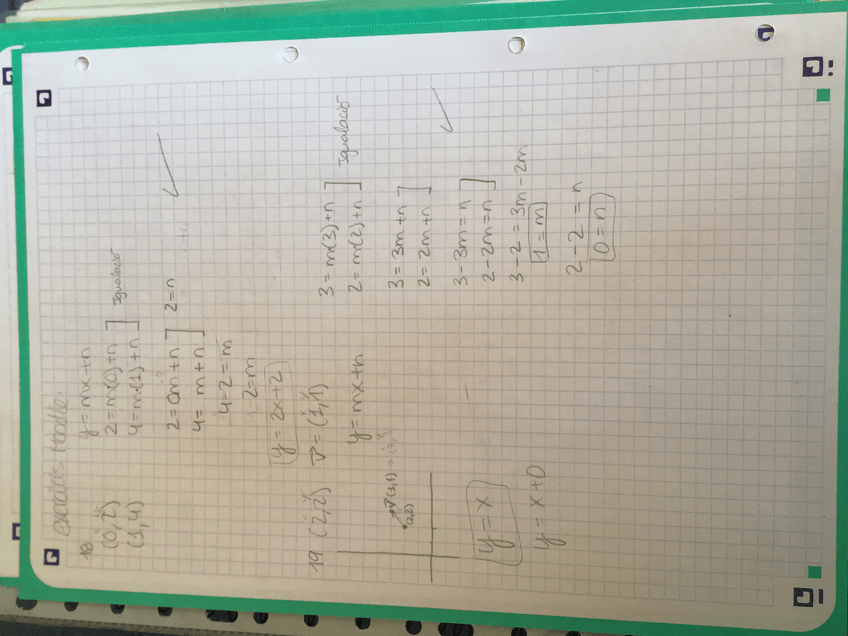 exercicis Moodle:
18
(0,2) y = mx+n
(1,4) 2 = m(0)+n ] Igualació
4 = m(1)+n
2 = 0m+n ] 2=n
4 = m+n
4-2=m
2=m
y = 2x+2
19 (2,2) v = (1,1)
y = mx+n
v(1,1)
(2,2)
3 = m(3)+n ] Igualació
2 = m(2)+n
3 = 3m+n
2 = 2m+n
3-3m=n
2-2m=n
3-2=3m-2m
1=m
2-2=n
0=n
y=x
y=x+0